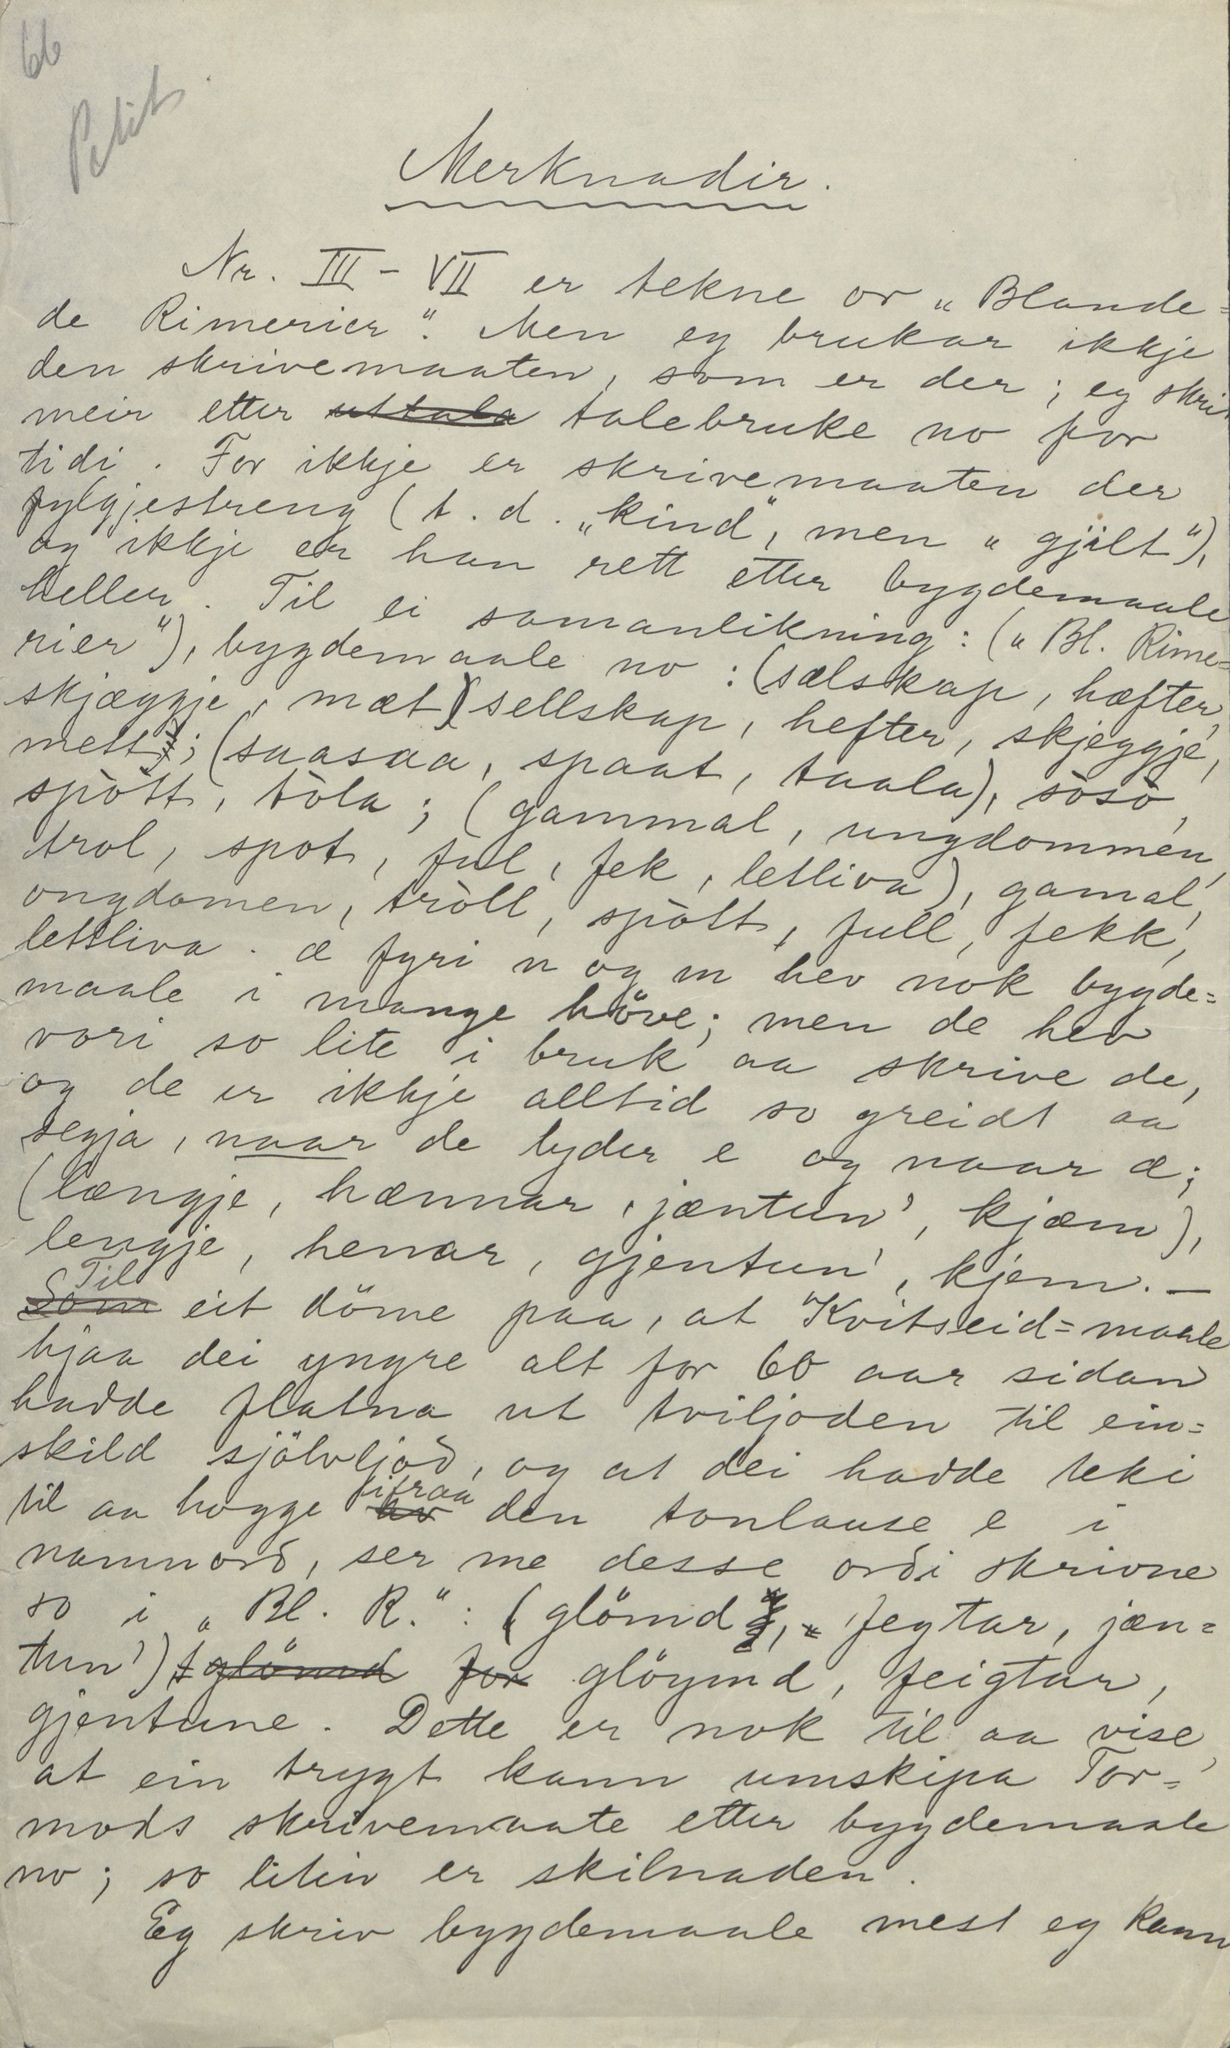 66
Petit
Merknadir.
Nr. III - VII er tekne or „Blande=
de Rimerier“. Men eg brukar ikkje
den skrivemaaten, som er der; eg skri
meir etter uttala talebruke no for
tidi. For ikkje er skrivemaaten der
fylgjestreng (t. d. „kind“, men „gjilt“),
og ikkje er han rett etter bygdemaale
heller. Til ei samanlikning: („Bl. Rime=
rier“), bygdemaale no: (sælskap, hæfter,
skjæggje, mæt) sellskap, hefter, skjeggje,
mett; (saasaa, spaat, taala), sòsò,
spòtt, tòla; (gammal, ungdommen,
trol, spot, ful, fek, letliva), gamal,
ongdomen, tròll, spòtt, full, fekk,
lettliva. æ fyri n og m hev nok bygde=
maale i mange höve; men de hev
vori so lite i bruk aa skrive de,
og de er ikkje alltid so greidt aa
segja, naar de lyder e og naar æ;
(længje, hænnar, jæntun', kjæm),
lengje, henar, gjentun', kjem. —
Som Til eit döme paa, at Kvitseid=maale
hjaa dei yngre alt for 60 aar sidan
hadde flatna ut tviljoden til ein=
skild sjölvljod, og at dei hadde teki
til aa hogge av ifraa den tonlause e i
namnord, ser me desse ordi skrivne
so i „Bl. R.“: (glömd, fegtar, jæn=
tun') glömd for glöymd, feigtar,
gjentune. Dette er nok til aa vise,
at ein trygt kann umskipa Tor=
mods skrivemaate etter bygdemaale
no; so liten er skilnaden.
Eg skriv bygdemaale mest eg kann